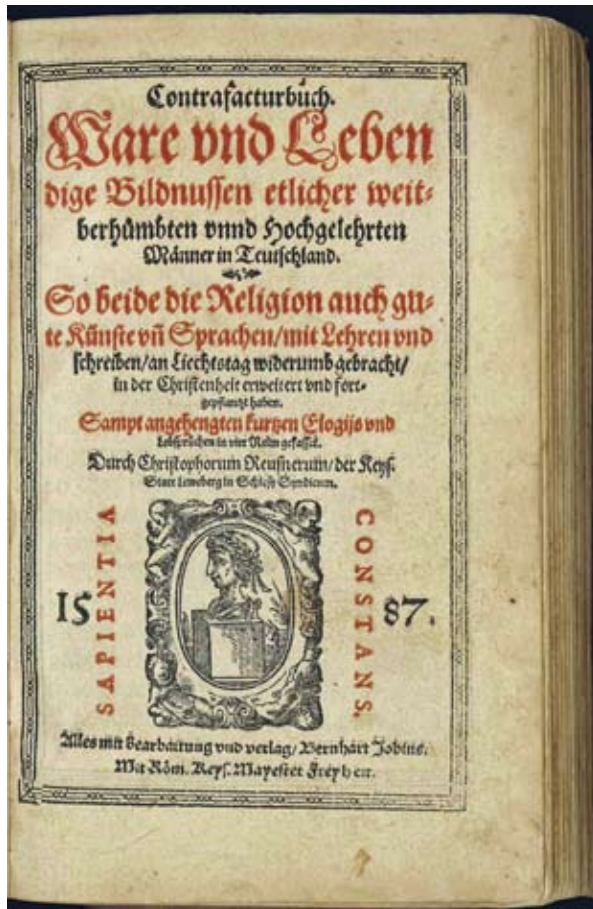 Contrafacturbuch.
Ware vnd Leben
dige Bildnussen etlicher weit⸗
berhůmbten vnnd Hochgelehrten
Männer in Teutschland.
So beide die Religion auch gu⸗
te Künste vn̄ Sprachen/mit Lehren vnd
schreiben/an Liechtstag widerumb gebracht/
in der Christenheit erweitert vnd fort⸗
gepflantzt haben.
Sampt angehengten kurtzen Elogijs vnd
Lobsprüchen in vier Reimen gefasset.
Durch Christophorum Reusnerum/der Keys.
Statt Leweberg in Schlesi Syndicum.
SAPIENTIA
CONSTANS.
15 87.
Alles mit bearbaitung vnd verlag/Bernhart Jobins.
Mit Röm. Keys. Mayestet Freyheit.